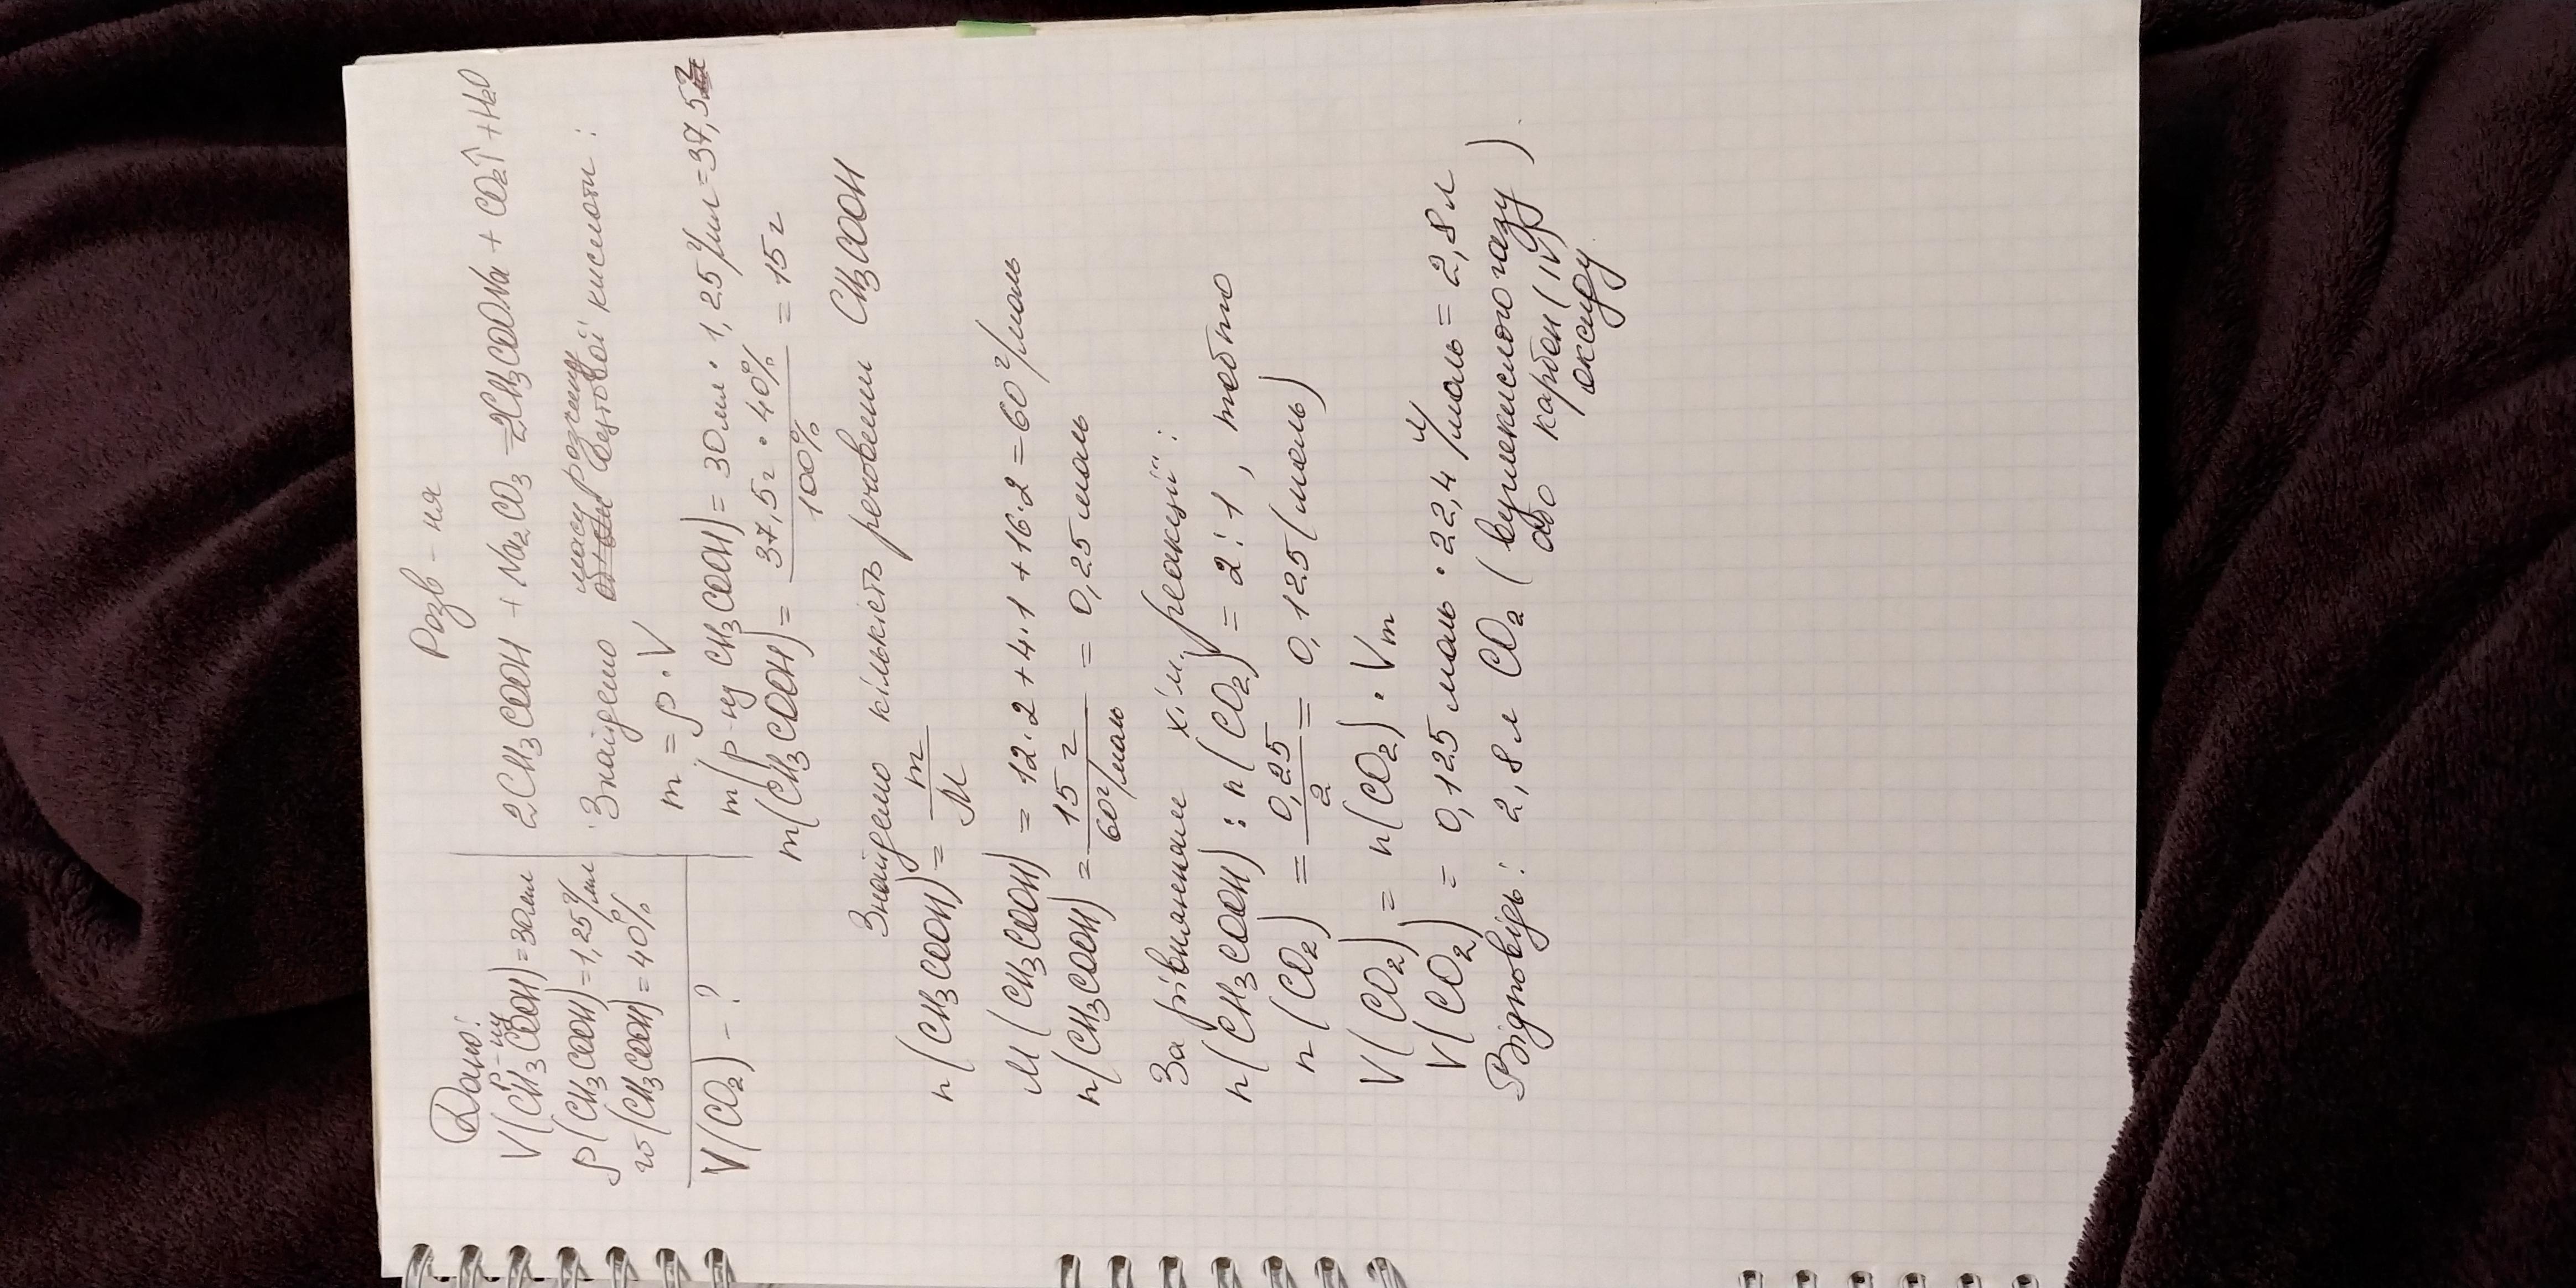 Дано:
V(CH₃COOH) р-ну = 30мл
ρ(CH₃COOH) = 1,25 г/мл
w(CH₃COOH) = 40%
V(CO₂) - ?
Розв-ня
2CH₃COOH + Na₂CO₃ = 2CH₃COONa + CO₂↑ + H₂O
Знайдемо масу розчину оцтової кислоти:
m = ρ · V
m(р-ну CH₃COOH) = 30мл · 1,25 г/мл = 37,5г
m(CH₃COOH) = 37,5г · 40% / 100% = 15г
Знайдемо кількість речовини CH₃COOH
n(CH₃COOH) = m/M
M(CH₃COOH) = 12·2 + 4·1 + 16·2 = 60 г/моль
n(CH₃COOH) = 15 г / 60 г/моль = 0,25 моль
За рівнянням хім. реакції:
n(CH₃COOH) : n(CO₂) = 2:1, тобто
n(CO₂) = 0,25/2 = 0,125 (моль)
V(CO₂) = n(CO₂) · Vm
V(CO₂) = 0,125 моль · 22,4 л/моль = 2,8л
Відповідь: 2,8л CO₂ (вуглекислого газу
або карбон(IV)
оксиду).